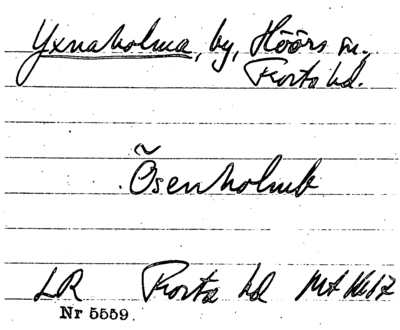 Yxnaholma, by, Höörs sn.,
Frosta hd.
Õsenholmb
LR Frosta hd
Nr 5559.